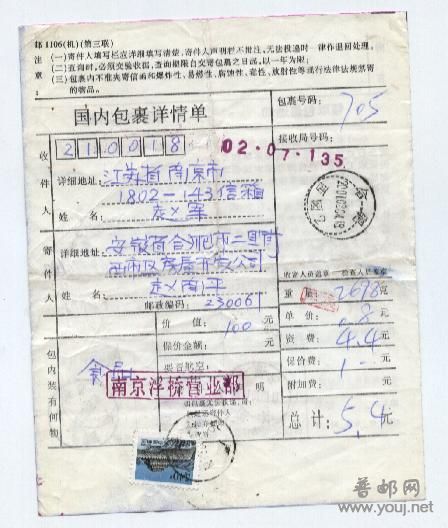 邮1106(机)(第三联)
注意:
(一)寄件人填写栏应详细填写清楚,寄件人声明栏不批注,无法投递时一律作退回处理。
(二)查询时,必须交验收据,查询期限自交寄包裹之日起,以一年为限;
(三)包裹内不准夹寄信函和爆炸性、易燃性、腐蚀性、毒性、放射性等或行法律法规禁寄的物品。
国内包裹详情单
包裹号码: 705
接收局号码:
收件人
210018
02.07.135
详细地址: 江苏省南京市
1802-143信箱
姓名:
寄件人
详细地址: 安徽省合肥市
姓名: 赵南平
邮政编码: 230061
2001.02.04.18
收寄人员签章
重量: 2678克
价值: 100元
单价: 0.8元
保价金额: 元
资费: 4.4元
保价费: 1-元
附加费: 元
总计: 5.4元
包内装有何物
食品
南京洋桥营业部
明
普邮网
www.youj.net